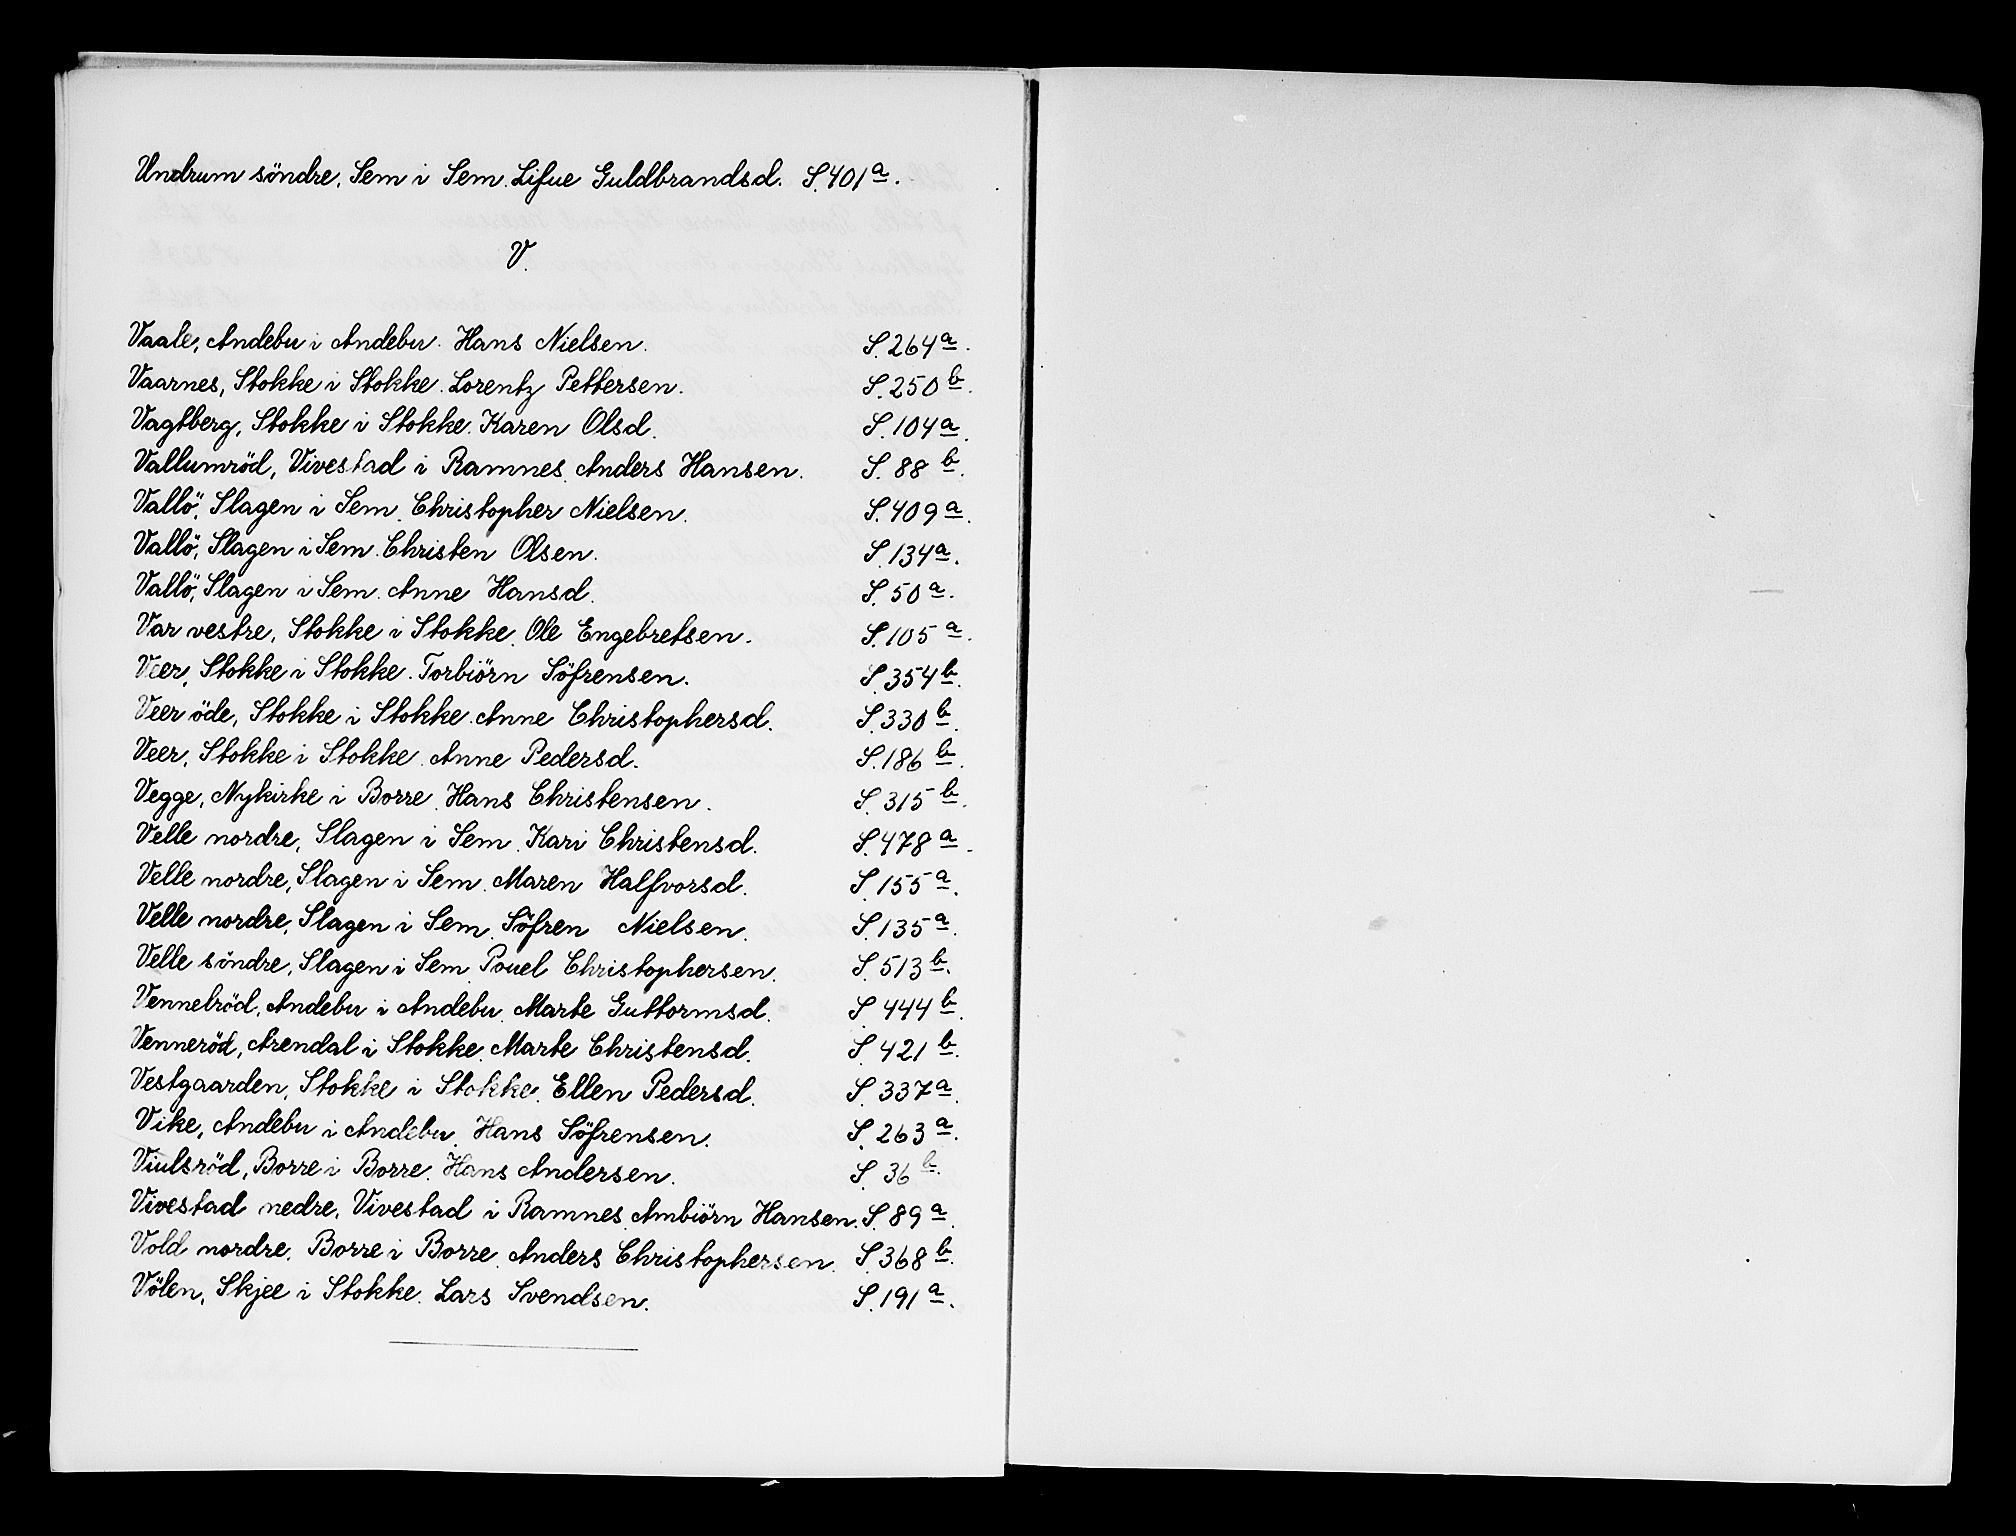 Undrum söndre, Sem i Sem. Lifue Guldbrandsd. S. 401 a.
V.
Vaale, Andebu i Andebu. Hans Nielsen. S. 264 a.
Vaarnes, Stokke i Stokke. Lorentz Pettersen. S. 250 b.
Vagtberg, Stokke i Stokke. Karen Olsd. S. 104 a.
Vallumröd, Vivestad i Ramnes. Anders Hansen. S. 88 b.
Vallö, Slagen i Sem. Christopher Nielsen. S. 409 a.
Vallö, Slagen i Sem. Christen Olsen. S. 134 a.
Vallö, Slagen i Sem. Anne Hansd. S. 50 a.
Var vestre, Stokke i Stokke. Ole Engebretsen. S. 105 a.
Veer, Stokke i Stokke. Torbiörn Söfrensen. S. 354 b.
Veer öde, Stokke i Stokke. Anne Christophersd. S. 330 b.
Veer, Stokke i Stokke. Anne Pedersd. S. 186 b.
Vegge, Nykirke i Borre. Hans Christensen. S. 315 b.
Velle nordre, Slagen i Sem. Kari Christensd. S. 478 a.
Velle nordre, Slagen i Sem. Maren Halfvorsd. S. 155 a.
Velle nordre, Slagen i Sem. Söfren Nielsen. S. 135 a.
Velle söndre, Slagen i Sem. Pouel Christophersen. S. 513 b.
Vennelröd, Andebu i Andebu. Marte Guttormsd. S. 444 b.
Venneröd, Arendal i Stokke. Marte Christensd. S. 421 b.
Vestgaarden, Stokke i Stokke. Ellen Pedersd. S. 337 a.
Vike, Andebu i Andebu. Hans Söfrensen. S. 263 a.
Viulsröd, Borre i Borre. Hans Andersen. S. 36 b.
Vivestad nedre, Vivestad i Ramnes. Ambiörn Hansen. S. 89 a.
Vold nordre, Borre i Borre. Anders Christophersen. S. 368 b.
Völen, Skjee i Stokke. Lars Svendsen. S. 191 a.